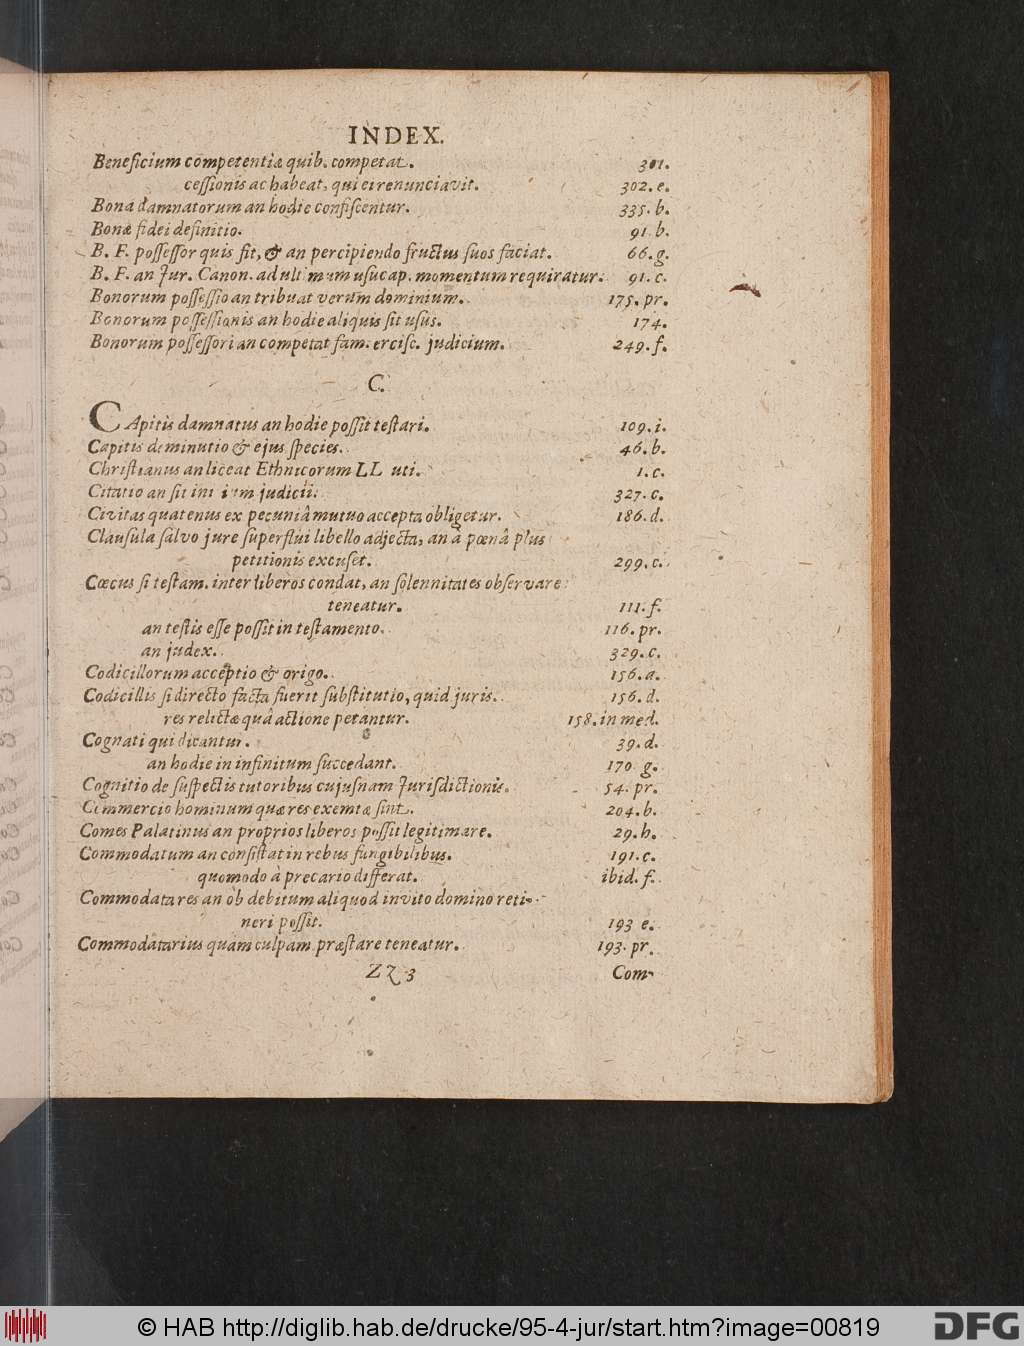 INDEX.
Beneficium competentiæ quib. competat. 301.
cessionis ac habeat, qui ei renunciavit. 302. e.
Bona damnatorum an hodie confiscentur. 335. b.
Bonæ fidei definitio. 91. b.
B. F. possessor quis sit, & an percipiendo fructus suos faciat. 66. g.
B. F. an Jur. Canon. ad ultimum usucap. momentum requiratur. 91. c.
Bonorum possessio an tribuat verum dominium. 175. pr.
Bonorum possessionis an hodie aliquis sit usus. 174.
Bonorum possessori an competat fam. ercisc. judicium. 249. f.
C.
CApitis damnatus an hodie possit testari. 109. i.
Capitis deminutio & ejus species. 46. b.
Christianus an liceat Ethnicorum LL uti. 1. c.
Citatio an sit initium judicii. 327. c.
Civitas quatenus ex pecuniâ mutuo accepta obligetur. 186. d.
Clausula salvo jure superflui libello adjecta, an à pœnâ plus
petitionis excuset. 299. c.
Cœcus si testam. inter liberos condat, an solennitates observare
teneatur. 111. f.
an testis esse possit in testamento. 116. pr.
an judex. 329. c.
Codicillorum acceptio & origo. 156. a.
Codicillis si directo facta fuerit substitutio, quid juris. 156. d.
res relictæ quâ actione petantur. 158. in med.
Cognati qui dicantur. 39. d.
an hodie in infinitum succedant. 170. g.
Cognitio de suspectis tutoribus cujusnam Jurisdictionis. 54. pr.
Commercio hominum quæ res exemtæ sint. 204. b.
Comes Palatinus an proprios liberos possit legitimare. 29. h.
Commodatum an consistat in rebus fungibilibus. 191. c.
quomodo à precario differat. ibid. f.
Commodata res an ob debitum aliquod invito domino reti-
neri possit. 193 e.
Commodatarius quam culpam præstare teneatur. 193. pr.
Zz 3 Com-
© HAB http://diglib.hab.de/drucke/95-4-jur/start.htm?image=00819
DFG